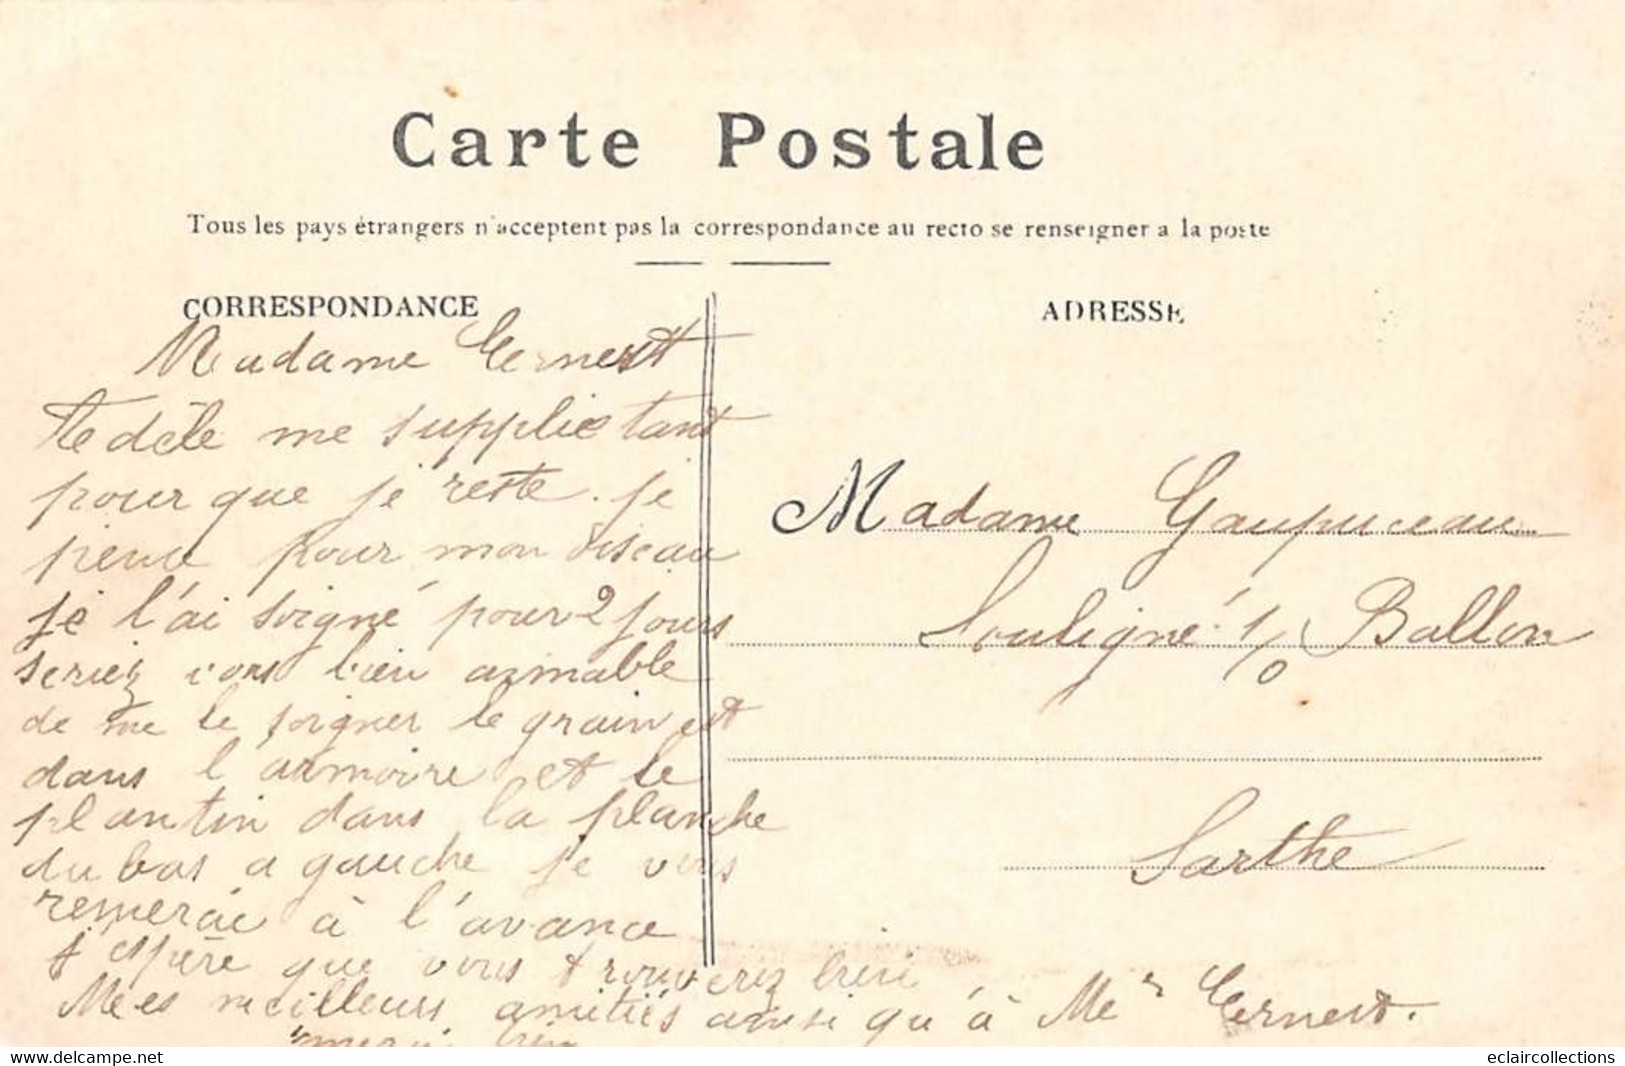 Carte Postale
Tous les pays étrangers n'acceptent pas la correspondance au recto se renseigner a la poste
CORRESPONDANCE
ADRESSE
Madame Ernest
dèle me supplie tant
pour que je reste. je
peux pour mon oiseau
je l'ai soigné pour 2 jours
seriez vous bien aimable
de me le soigner le grain est
dans l'armoire et le
plantin dans la planche
du bas a gauche je vous
remercie à l'avance
J'espère que vous trouverez bien
Mes meilleurs amitiés ainsi qu'à Mr Ernest.
merci bien
Madame Gaupuceau
Souligné s/ Ballon
Sarthe
eclaircollections